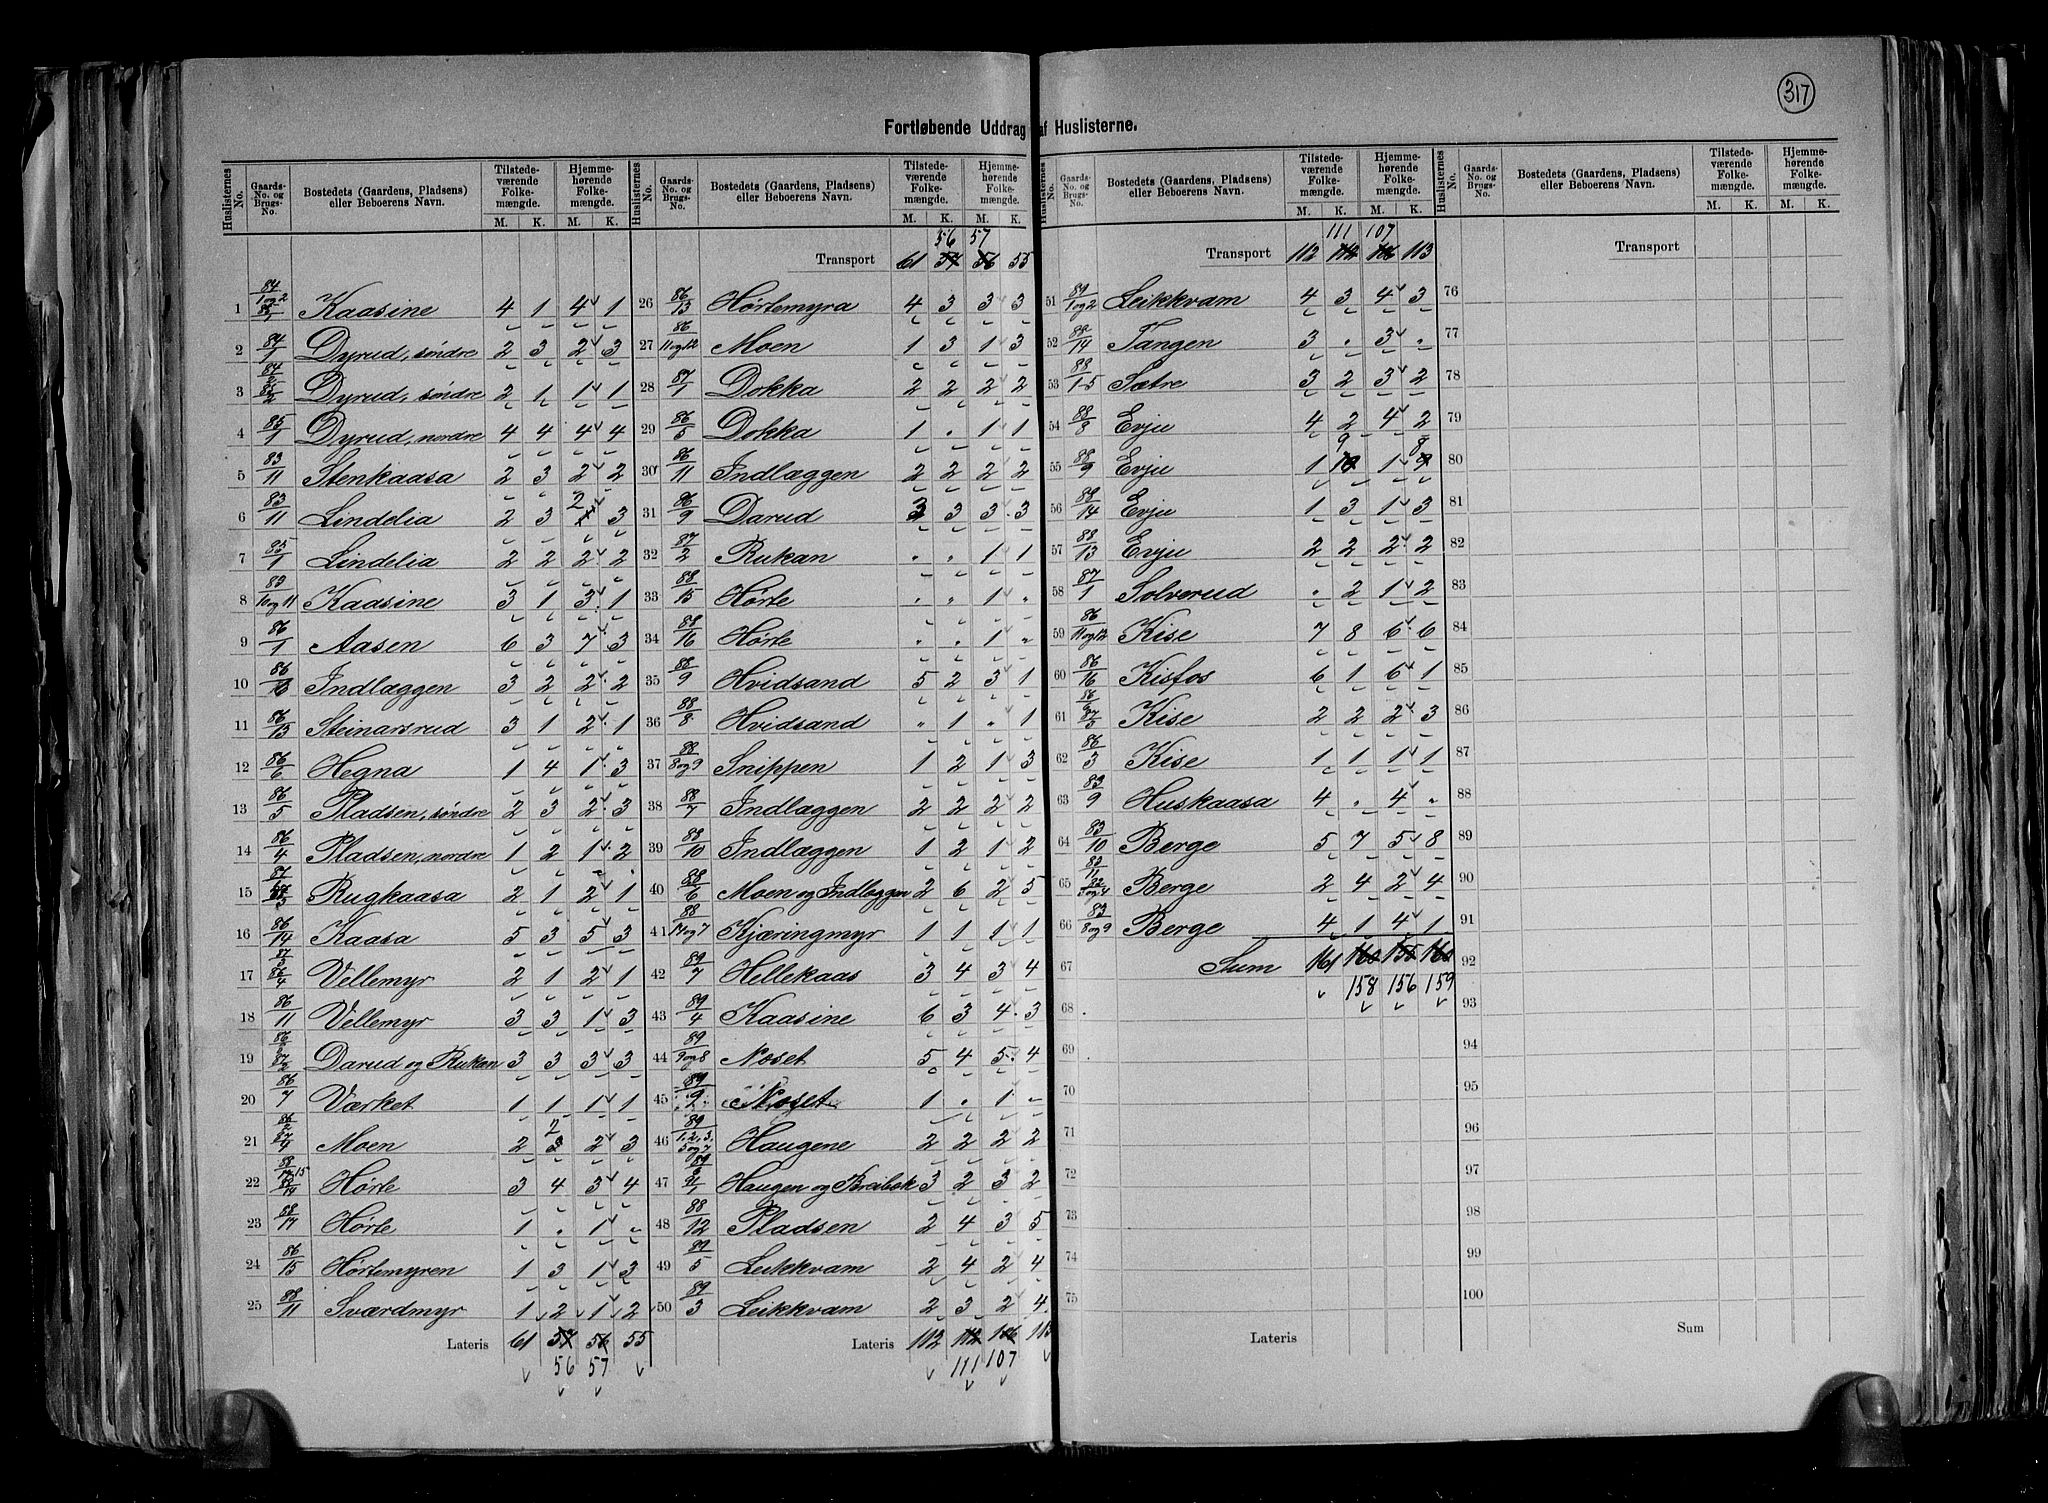 317
Fortløbende Uddrag af Huslisterne.
Huslisternes No. | Gaards-No. og Brugs-No. | Bostedets (Gaardens, Pladsens) eller Beboerens Navn. | Tilstedeværende Folkemængde. M. K. | Hjemmehørende Folkemængde. M. K.
1 Kaasine 4 1 4 1
2 84/1 Dyrud, søndre 2 3 2 3
3 Dyrud, søndre 2 1 1 1
4 85/1 Dyrud, nordre 4 4 4 4
5 83/11 Stenkaasa 2 3 2 2
6 83/11 Lindelia 2 3 2 3
7 85/1 Lindelia 2 2 2 2
8 83/10og11 Kaasine 3 1 3 1
9 86/1 Aasen 6 3 7 3
10 Indlæggen 3 2 2 2
11 86/13 Steinarsrud 3 1 2 1
12 86/6 Hegna 1 4 1 3
13 86/5 Pladsen, søndre 2 3 2 3
14 86/4 Pladsen, nordre 1 2 1 2
15 Rugkaasa 2 1 2 1
16 86/14 Kaasa 5 3 5 3
17 Vellemyr 2 1 2 1
18 86/11 Vellemyr 3 3 1 3
19 Darud og Rukan 3 3 3 3
20 86/7 Værket 1 1 1 1
21 Moen 2 2 2 3
22 Hørte 3 4 3 4
23 88/17 Hørte 1 " 1 "
24 86/15 Hørtemyren 1 3 1 3
25 88/11 Sværdmyr 1 2 1 2
Lateris 61 57 56 55
56 57
Huslisternes No. | Gaards-No. og Brugs-No. | Bostedets (Gaardens, Pladsens) eller Beboerens Navn. | Tilstedeværende Folkemængde. M. K. | Hjemmehørende Folkemængde. M. K.
56 57
Transport 61 57 56 55
26 86/13 Hørtemyra 4 3 3 3
27 86/11og12 Moen 1 3 1 3
28 87/1 Dokka 2 2 2 2
29 86/5 Dokka 1 " 1 1
30 86/11 Indlæggen 2 2 2 2
31 86/9 Darud 3 3 3 3
32 87/2 Rukan " " 1 1
33 88/15 Hørte " " 1 "
34 88/16 Hørte " " 1 "
35 88/9 Hvidsand 5 2 3 1
36 88/8 Hvidsand " 1 " 1
37 88/8og9 Snippen 1 2 1 3
38 88/7 Indlæggen 2 2 2 2
39 88/10 Indlæggen 1 2 1 2
40 88/6 Moen og Indlæggen 2 6 2 5
41 Kjæringmyr 1 1 1 1
42 89/7 Hellekaas 3 4 3 4
43 89/4 Kaasine 6 3 4 3
44 Noset 5 4 5 4
45 Noset 1 " 1 "
46 89/1,2,3,5og7 Haugene 2 2 2 2
47 Haugen og Breibak 3 2 3 2
48 88/12 Pladsen 2 4 3 5
49 89/5 Leikkvam 2 4 2 4
50 89/3 Leikkvam 2 3 2 4
Lateris 112 112 106 113
111 107
Huslisternes No. | Gaards-No. og Brugs-No. | Bostedets (Gaardens, Pladsens) eller Beboerens Navn. | Tilstedeværende Folkemængde. M. K. | Hjemmehørende Folkemængde. M. K.
111 107
Transport 112 112 106 113
51 89/1og2 Leikkvam 4 3 4 3
52 88/14 Tangen 3 " 3 "
53 88/1-5 Sætre 3 2 3 2
54 88/8 Evju 4 2 4 2
9 8
55 88/9 Evju 1 10 1 9
56 88/14 Evju 1 3 1 3
57 88/13 Evju 2 2 2 2
58 87/1 Solverud " 2 1 2
59 86/11og12 Kise 7 8 6 6
60 86/16 Kisfos 6 1 6 1
61 Kise 2 2 2 3
62 86/3 Kise 1 1 1 1
63 83/9 Huskaasa 4 " 4 "
64 83/10 Berge 5 7 5 8
65 Berge 2 4 2 4
66 83/8og9 Berge 4 1 4 1
67 Sum 161 160 155 160
158 156 159
68
69
70
71
72
73
74
75
Lateris
Huslisternes No. | Gaards-No. og Brugs-No. | Bostedets (Gaardens, Pladsens) eller Beboerens Navn. | Tilstedeværende Folkemængde. M. K. | Hjemmehørende Folkemængde. M. K.
Transport
76
77
78
79
80
81
82
83
84
85
86
87
88
89
90
91
92
93
94
95
96
97
98
99
100
Sum